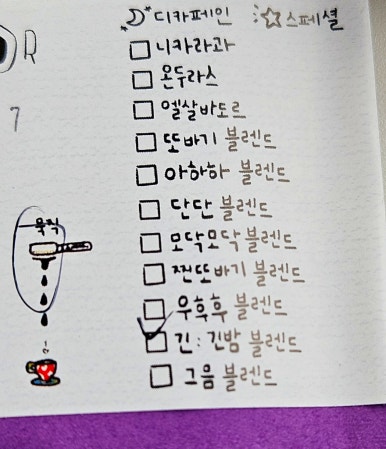 디카페인 스페셜
니카라과
온두라스
엘살바도르
또바기 블렌드
아하하 블렌드
단단 블렌드
모닥모닥 블렌드
찐또바기 블렌드
우후후 블렌드
긴:긴밤 블렌드
그음 블렌드
R
7